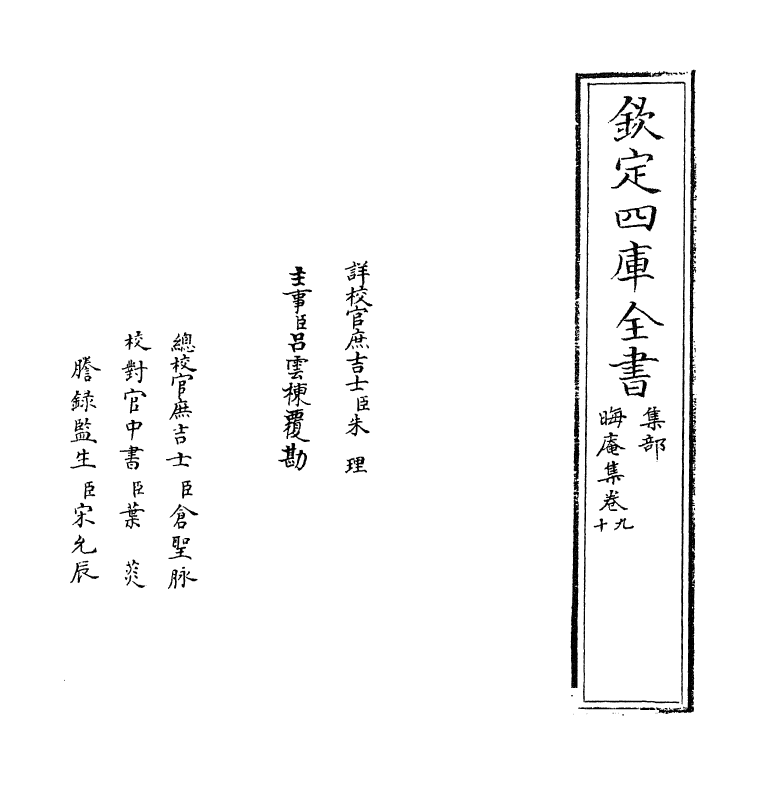 欽定四庫全書
集部
晦庵集卷九十
詳校官庶吉士臣朱理
主事臣呂雲棟覆勘
總校官庶吉士臣倉聖脉
校對官中書臣葉菼
謄録監生臣宋允辰